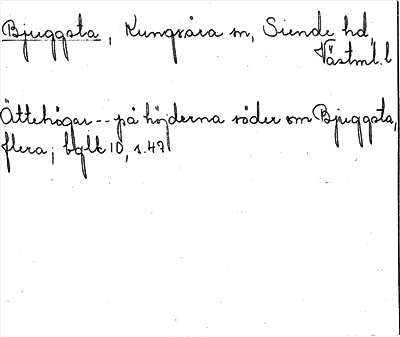 Bjuggsta, Kungsåra sn, Siende hd,
Västml. l
Ättehögar -- på höjderna söder om Bjuggsta,
flera; bglt 10, s. 47